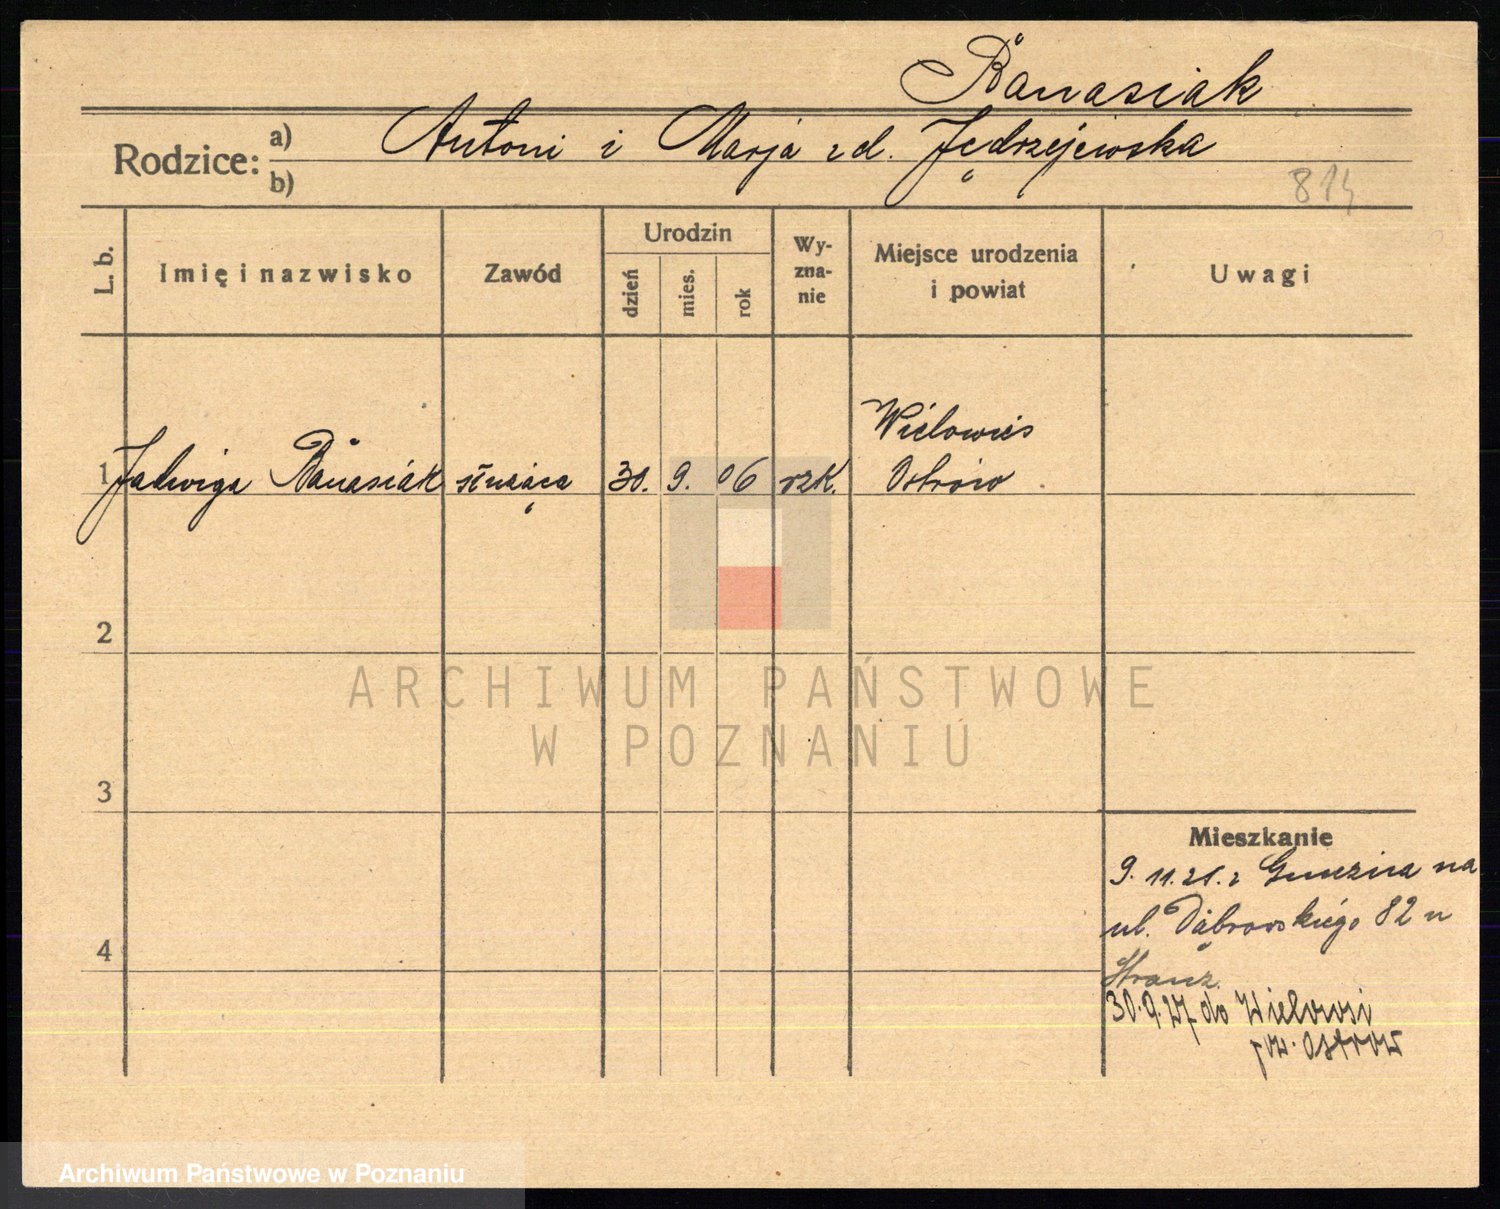 Banasiak
Rodzice: a) Antoni i Marja zd. Jędrzejewska
b)
814
L. b.
Imię i nazwisko
Zawód
Urodzin
dzień
mies.
rok
Wy-
zna-
nie
Miejsce urodzenia
i powiat
Uwagi
Wielowieś
1 Jadwiga Banasiak służąca 30. 9. 06 rzk. Ostrów
2
ARCHIWUM PAŃSTWOWE
W POZNANIU
3
Mieszkanie
9. 11. z Gniezna na
ul. Dąbrowskiego 82 u
4
30.9.27 do Wielowsi
pow. Ostrow
Archiwum Państwowe w Poznaniu